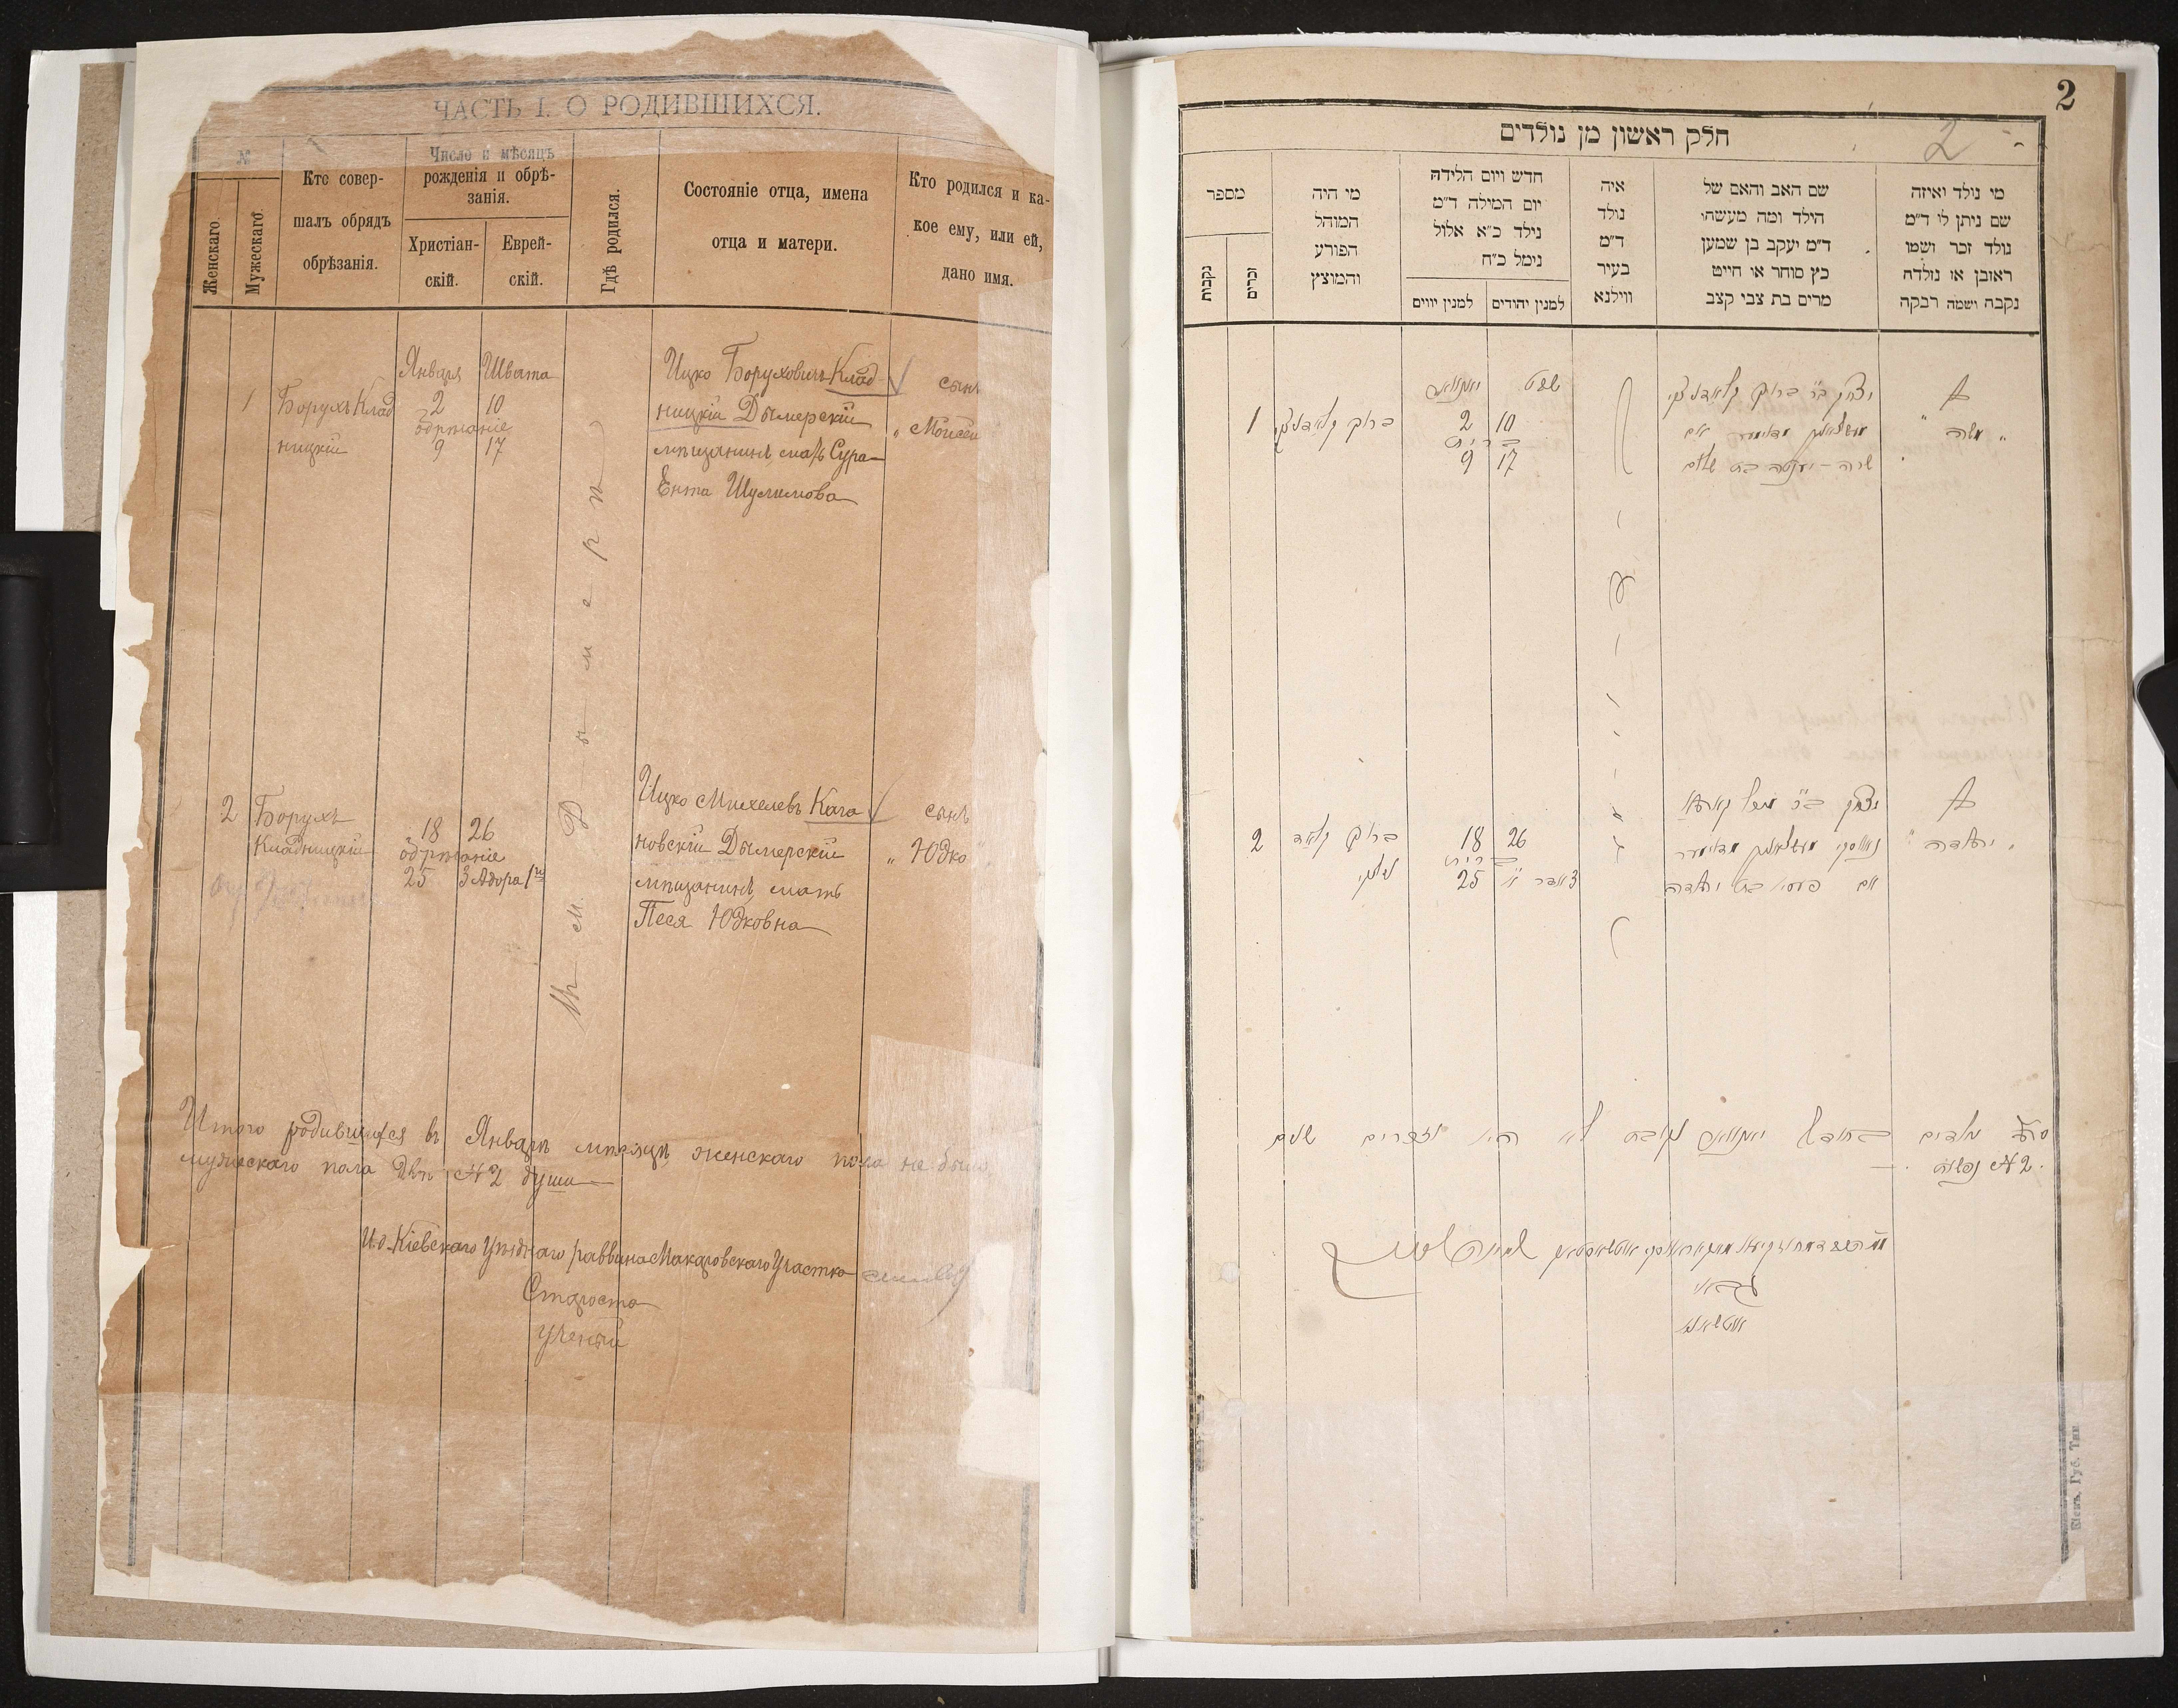 ЧАСТЬ I. О РОДИВШИХСЯ.
№
Женскаго.
Мужескаго.
Кто совер-
шалъ обрядъ
обрѣзанія.
Число и мѣсяцъ
рожденія и обрѣ-
занія.
Христіан-
скій.
Еврей-
скій.
Гдѣ родился.
Состояніе отца, имена
отца и матери.
Кто родился и ка-
кое ему, или ей,
дано имя.
1
Борухъ Клад
ницкій
Января
2
обрѣзаніе
9
Швата
10
17
Ицко Боруховичъ Клад-
ницкій Дымерскій
мѣщанинъ, мать Сура-
Ента Шулимова
сынъ
„ Моисей
М. Дымеръ
2
Борухъ
Кладницкій
18
обрѣзаніе
25
26
3 Адора 1го
Ицко Михелевъ Кага
новскій Дымерскій
мѣщанинъ, мать
Песя Юдковна
сынъ
„ Юдко
Итого родившихся въ Январѣ мѣсяцѣ, женскаго пола не было
мужескаго пола двѣ № 2 души
И.д. Кіевскаго Уѣзднаго раввина Макаровскаго Участка
Староста
Ученый
2
2
חלק ראשון מן נולדים
מי נולד ואיזה
שם ניתן לו ד״מ
נולד זכר ושמו
ראובן או נולדה
נקבה ושמה רבקה
שם האב והאם של
הילד ומה מעשהו
ד״מ יעקב בן שמעון
כץ סוחר או חייט
מרים בת צבי קצב
איה
נולד
ד״מ
בעיר
ווילנא
חדש ויום הלידה
יום המילה ד״מ
נילד כ״א אלול
נימל כ״ח
למנין יהודים
למנין יווים
מי היה
המוהל
הפורע
והמוצץ
מספר
זכרים
נקבות
משה
יצחק ב״ר ברוך קלאדניצקי
שרה־יענטה בת שלום
שבט
10
17
יאנוואר
2
ברית
9
ברוך קלאדניצקי
1
יהודה
יצחק ב״ר מיכל קאהא
נאווסקי
אם פעסיא בת יהודה
26
3 אדר א׳
18
ברית
25
ברוך קלאד
ניצקי
2
סך נולדים בחודש יאנוואר נקבות לא היו וזכרים שנים
№ 2 נפשות
גבאי
Кіевъ. Губ. Тип